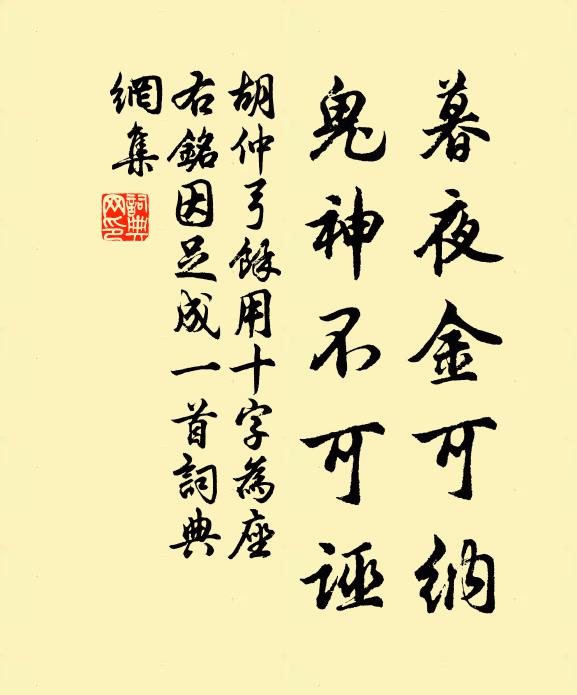 暮夜金可納
鬼神不可誣
胡仲弓餘用十字為座
右銘因足成一首詞典
網集
詞典
网印